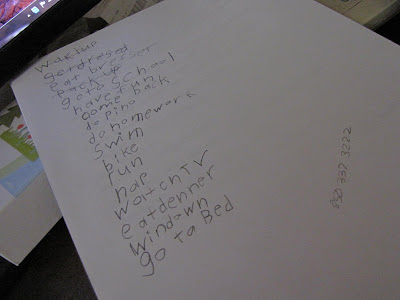 wakeup
getdresed
eat brecfer
pack up
goto school
have fun
come back
do pino
do homework
swim
bike
run
nap
watch TV
eat denner
windown
go to Bed
850 337 3222